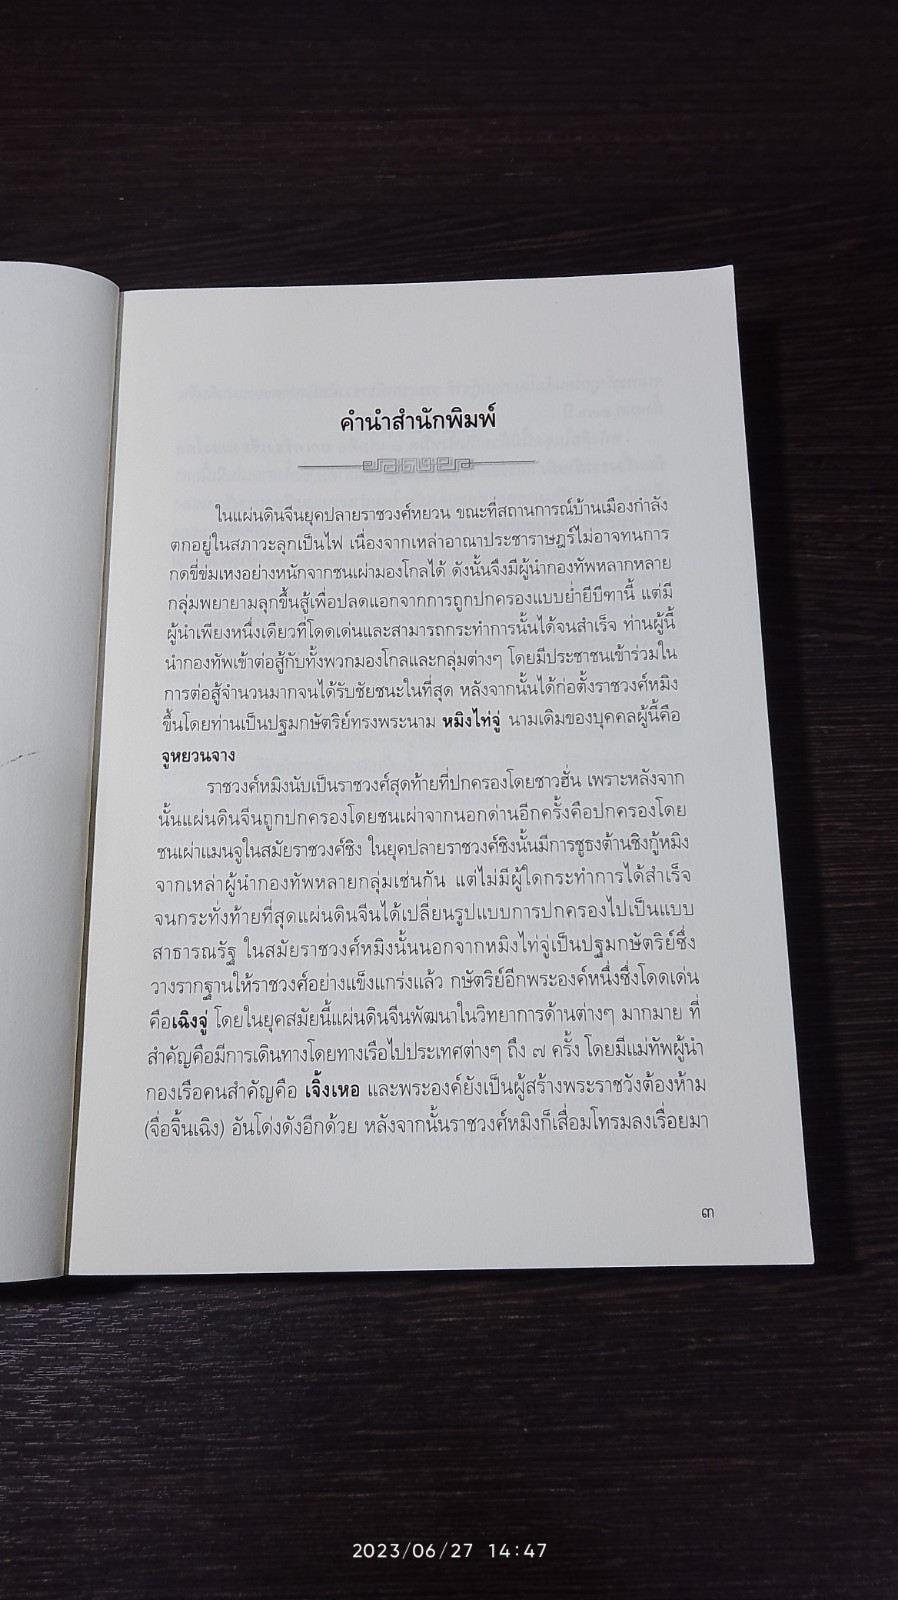 คำนำสำนักพิมพ์
ในแผ่นดินจีนยุคปลายราชวงศ์หยวน ขณะที่สถานการณ์บ้านเมืองกำลัง
ตกอยู่ในสภาวะลุกเป็นไฟ เนื่องจากเหล่าอาณาประชาราษฎร์ไม่อาจทนการ
กดขี่ข่มเหงอย่างหนักจากชนเผ่ามองโกลได้ ดังนั้นจึงมีผู้นำกองทัพหลากหลาย
กลุ่มพยายามลุกขึ้นสู้เพื่อปลดแอกจากการถูกปกครองแบบย่ำยีบีฑานี้ แต่มี
ผู้นำเพียงหนึ่งเดียวที่โดดเด่นและสามารถกระทำการนั้นได้จนสำเร็จ ท่านผู้นี้
นำกองทัพเข้าต่อสู้กับทั้งพวกมองโกลและกลุ่มต่างๆ โดยมีประชาชนเข้าร่วมใน
การต่อสู้จำนวนมากจนได้รับชัยชนะในที่สุด หลังจากนั้นได้ก่อตั้งราชวงศ์หมิง
ขึ้นโดยท่านเป็นปฐมกษัตริย์ทรงพระนาม หมิงไท่จู่ นามเดิมของบุคคลผู้นี้คือ
จูหยวนจาง
ราชวงศ์หมิงนับเป็นราชวงศ์สุดท้ายที่ปกครองโดยชาวฮั่น เพราะหลังจาก
นั้นแผ่นดินจีนถูกปกครองโดยชนเผ่าจากนอกด่านอีกครั้งคือปกครองโดย
ชนเผ่าแมนจูในสมัยราชวงศ์ชิง ในยุคปลายราชวงศ์ชิงนั้นมีการชูธงต้านชิงกู้หมิง
จากเหล่าผู้นำกองทัพหลายกลุ่มเช่นกัน แต่ไม่มีผู้ใดกระทำการได้สำเร็จ
จนกระทั่งท้ายที่สุดแผ่นดินจีนได้เปลี่ยนรูปแบบการปกครองไปเป็นแบบ
สาธารณรัฐ ในสมัยราชวงศ์หมิงนั้นนอกจากหมิงไท่จู่เป็นปฐมกษัตริย์ซึ่ง
วางรากฐานให้ราชวงศ์อย่างแข็งแกร่งแล้ว กษัตริย์อีกพระองค์หนึ่งซึ่งโดดเด่น
คือเฉิงจู่ โดยในยุคสมัยนี้แผ่นดินจีนพัฒนาในวิทยาการด้านต่างๆ มากมาย ที่
สำคัญคือมีการเดินทางโดยทางเรือไปประเทศต่างๆ ถึง ๗ ครั้ง โดยมีแม่ทัพผู้นำ
กองเรือคนสำคัญคือ เจิ้งเหอ และพระองค์ยังเป็นผู้สร้างพระราชวังต้องห้าม
(จื่อจิ้นเฉิง) อันโด่งดังอีกด้วย หลังจากนั้นราชวงศ์หมิงก็เสื่อมโทรมลงเรื่อยมา
๓
2023/06/27 14:47